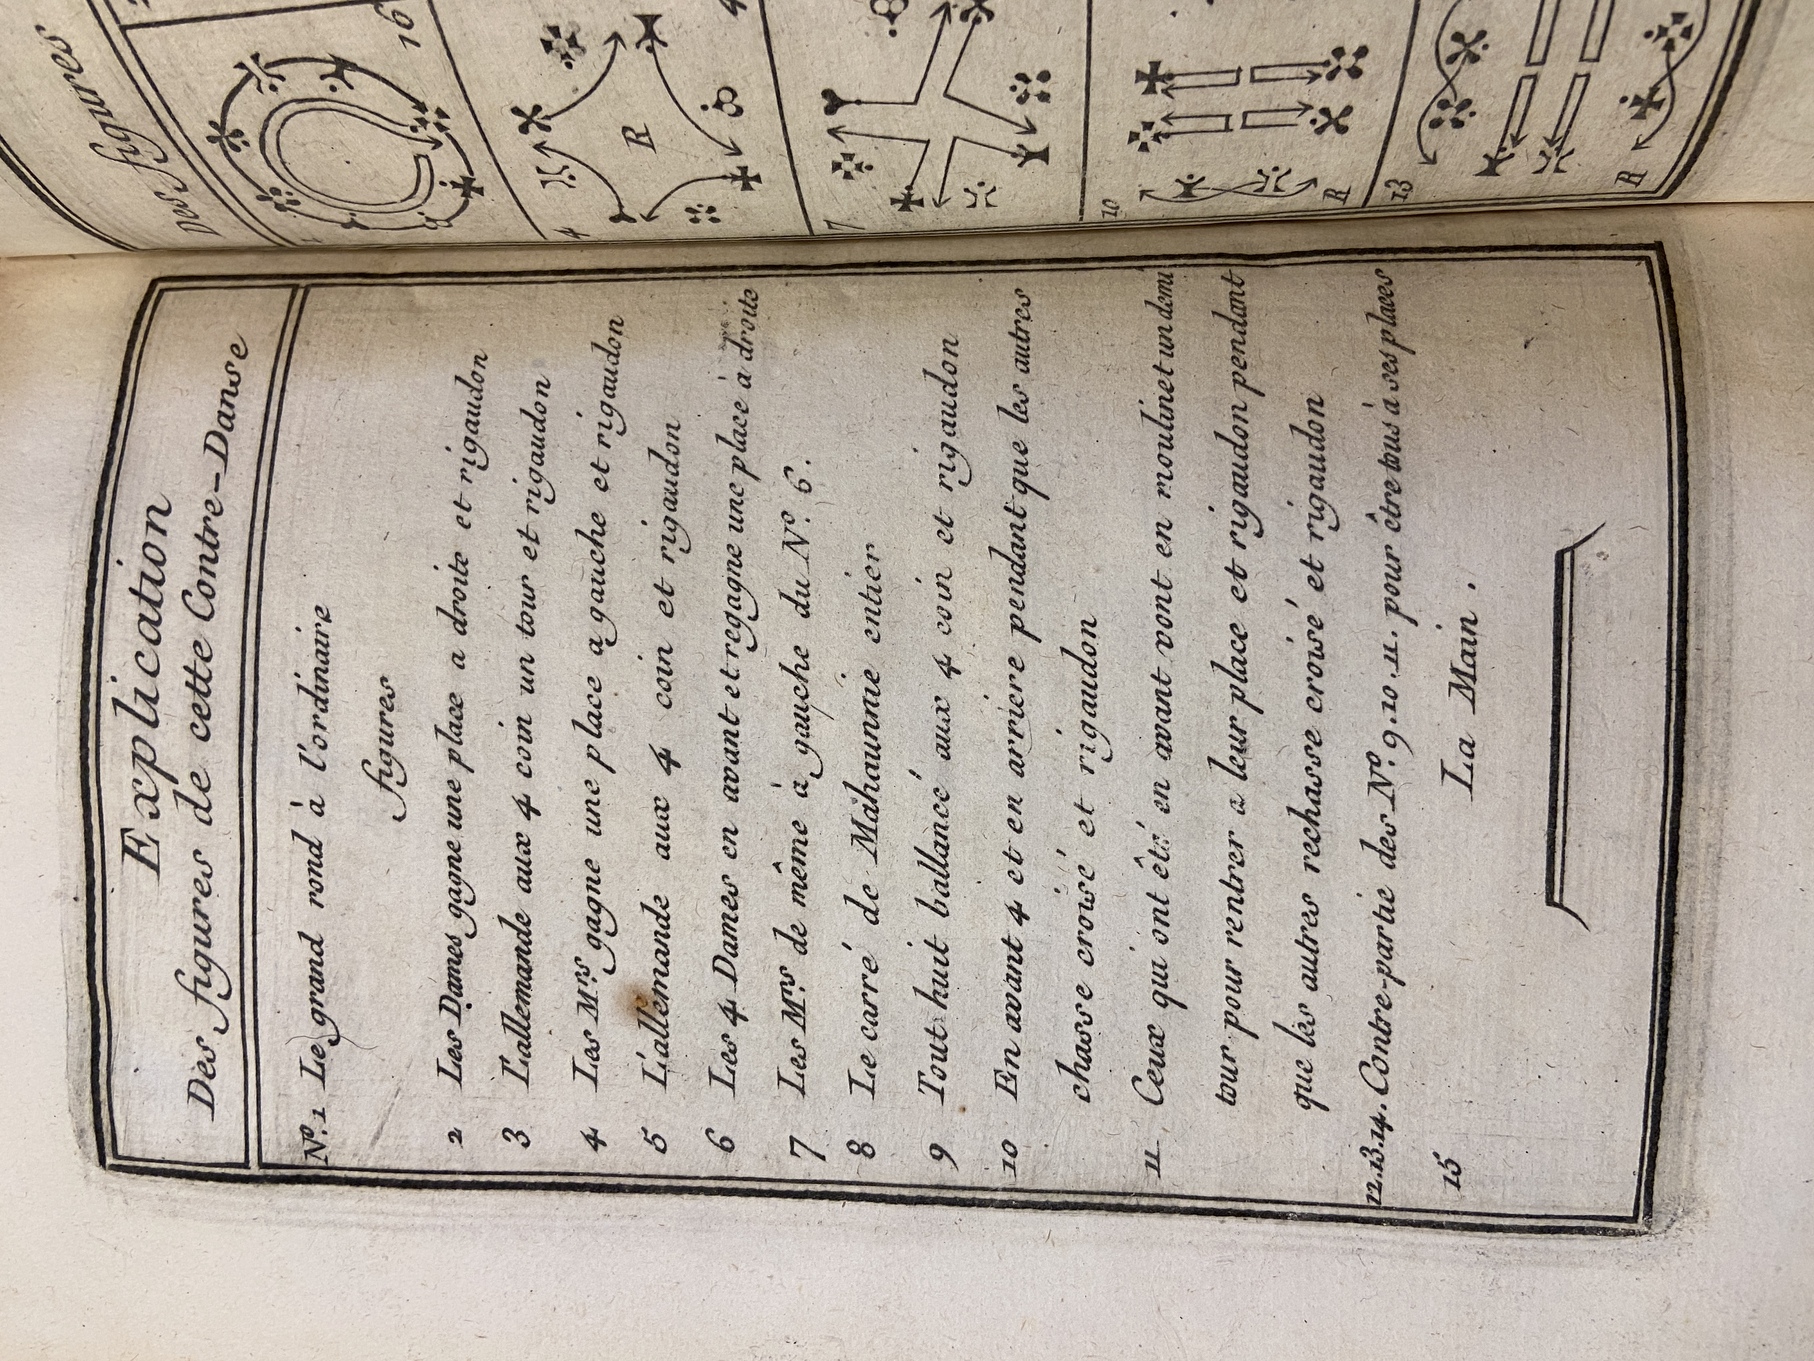 Explication
Des figures de cette Contre-Danse
Nº. 1 Le grand rond à l'ordinaire
figures
2 Les Dames gagne une place a droite et rigaudon
3 L'allemande aux 4 coin un tour et rigaudon
4 Les Mrs gagne une place a gauche et rigaudon
5 L'allemande aux 4 coin et rigaudon
6 Les 4 Dames en avant et regagne une place à droite
7 Les Mrs de même à gauche du Nº. 6.
8 Le carré de Mahaunne entier
9 Tout huit ballancé aux 4 coin et rigaudon
10 En avant 4 et en arriere pendant que les autres
chasse croisé et rigaudon
11 Ceux qui ont êté en avant vont en moulinet un demi
tour pour rentrer a leur place et rigaudon pendant
que les autres rechasse croisé et rigaudon
12.13.14. Contre-partie des Nº. 9. 10. 11. pour être tous à ses places
15 La Main.
Des figures
1
16
4
R
4
7
10
R
13
R